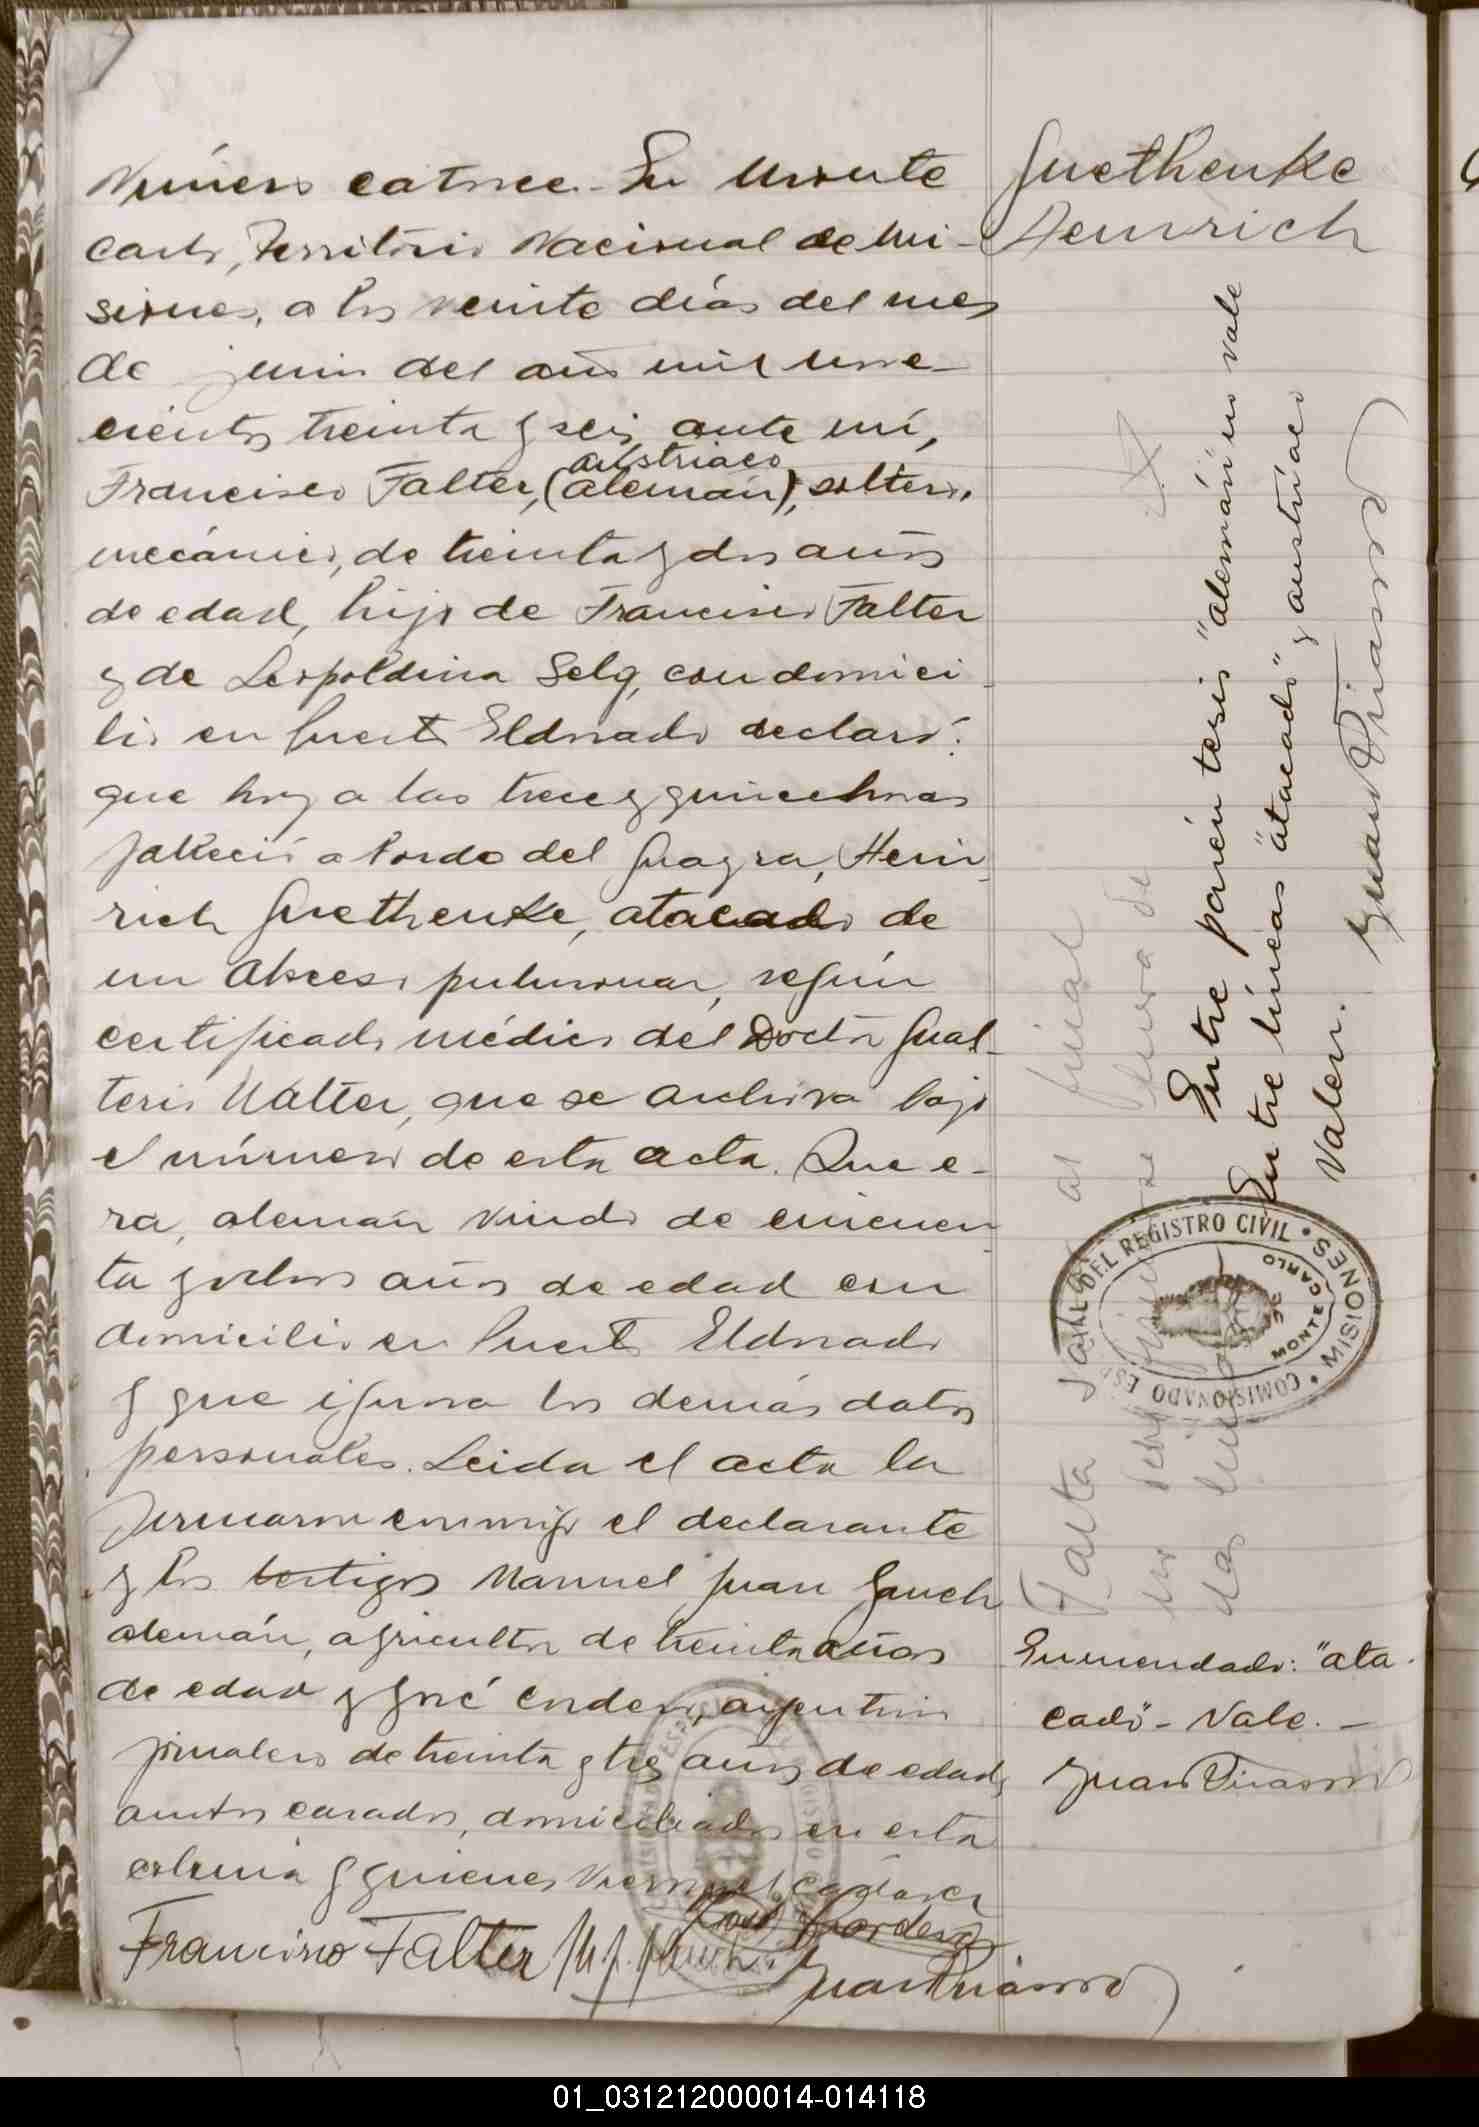 Número catorce. En Monte
carlo, Territorio Nacional de Mi-
siones, a los veinte días del mes
de junio del año mil nove-
cientos treinta y seis, ante mí,
austriaco
Francisco Falter, (alemán), soltero,
mecánico, de treinta y dos años
de edad, hijo de Francisco Falter
y de Leopoldina Selg, con domici-
lio en Puerto Eldorado declaró:
que hoy a las trece y quince horas
falleció a bordo del Guayra, Hein-
rich Guethenke, atacado de
un absceso pulmonar, según
certificado médico del Doctor Gual-
terio Walter, que se archiva bajo
el número de esta acta. Que e-
ra, alemán viudo de cincuen-
ta y ochos años de edad con
domicilio en Puerto Eldorado
y que ignora los demás datos
personales. Leida el acta la
firmaron conmigo el declarante
y los testigos Manuel Juan Jauch
alemán, agricultor de treinta años
de edad y José Cordero, argentino
jornalero de treinta y tres años de edad,
ambos casados, domiciliados en esta
colonia y quienes vieron el cadáver
José Cordero
Francisco Falter M. J. Jauch
Juan Pirasso
Guethenke
Heinrich
Entre parén tesis "alemán" no vale
Entre líneas "atacado" y austríaco
Valen.
Falta al final
Enmendado: "ata-
cado" - Vale. -
COMISIONADO ESPECIAL DEL REGISTRO CIVIL • MISIONES •
MONTE CARLO
01_031212000014-014118